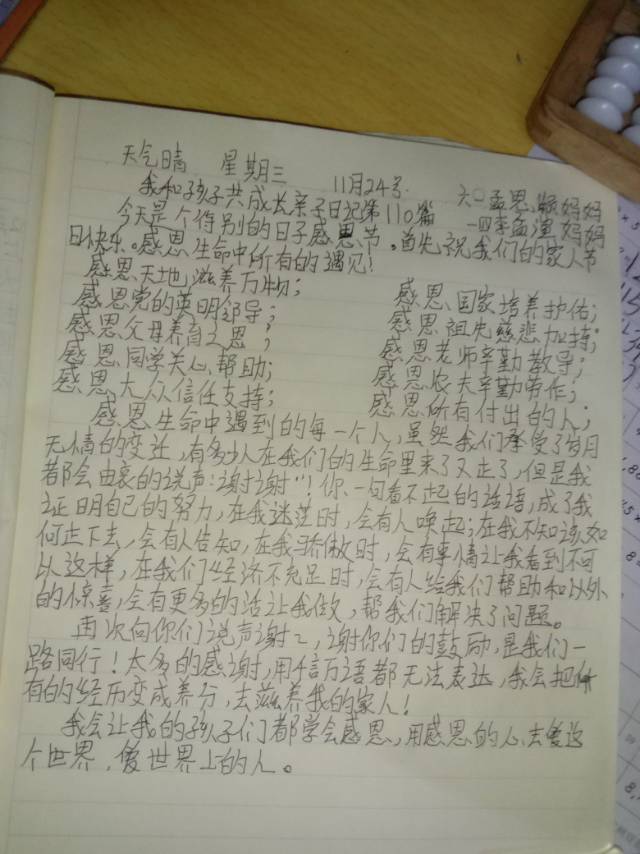 天气晴 星期三 11月24号
我和孩子共成长亲子日记第110篇 六〇孟思 妈妈
今天是个特别的日子感恩节。首先祝我们的家人节 一四李孟 妈妈
日快乐。感恩生命中所有的遇见!
感恩天地滋养万物;
感恩党的英明领导; 感恩国家培养护佑;
感恩父母养育之恩; 感恩祖先慈悲加持;
感恩同学关心帮助; 感恩老师辛勤教导;
感恩大众信任支持; 感恩农夫辛勤劳作;
感恩生命中遇到的每一个人, 感恩所有付出的人;
虽然我们承受了岁月
无情的变迁,有多少人在我们的生命里来了又走了,但是我
都会由衷的说声:谢谢"!你一句看不起的话语,成了我
证明自己的努力,在我迷茫时,会有人唤起;在我不知该如
何走下去,会有人告知,在我骄傲时,会有事情让我看到不可
以这样,在我们经济不充足时,会有人给我们帮助和以外
的惊喜,会有更多的活让我做,帮我们解决了问题。
再次向你们说声谢谢,谢你们的鼓励,是我们一
路同行!太多的感谢,用千言万语都无法表达,我会把所
有的经历变成养分,去滋养我的家人!
我会让我的孩子们都学会感恩,用感恩的心去爱这
个世界,爱世界上的人。